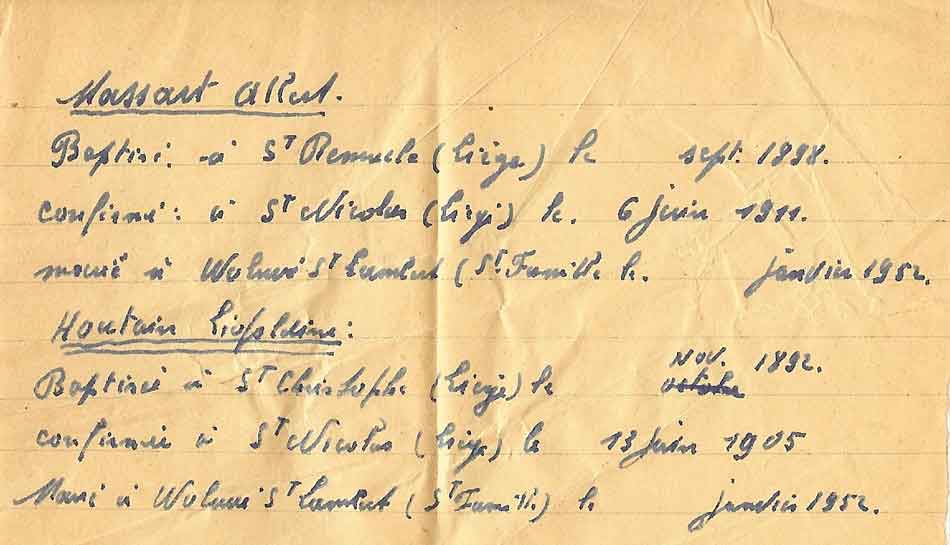 Massart Albert.
Baptisé: à St Remacle (Liège) le sept. 1898.
confirmé: à St Nicolas (Liège) le. 6 juin 1911.
marié à Woluwé St Lambert (St. Famille le. janvier 1952.
Houtain Léopoldine:
nov. 1892.
Baptisée à St Christophe (Liège) le octobre
confirmée à St Nicolas (Liège) le 13 juin 1905
Marié à Woluwé St Lambert (St Famille) le janvier 1952.